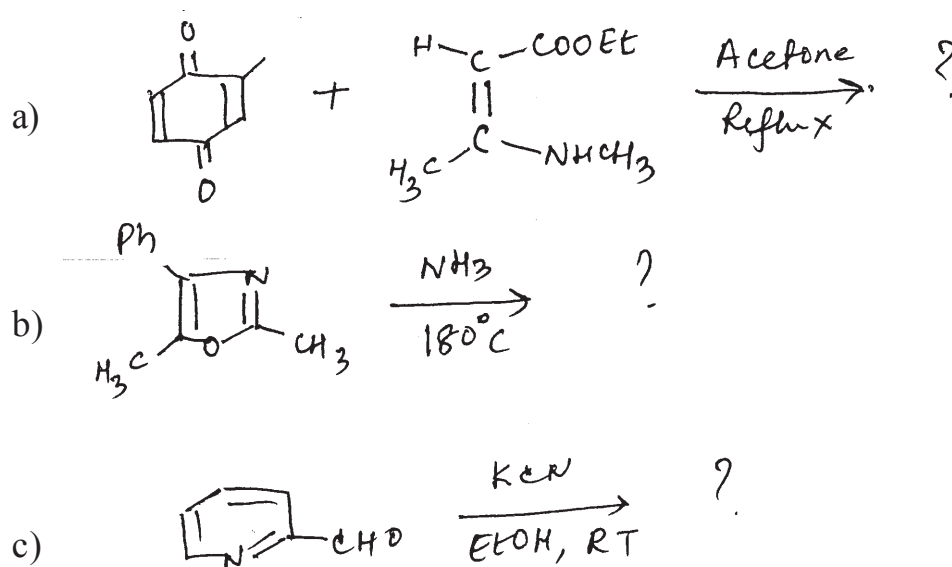 O
O
a)
+
H
C
COOEt
C
H3C
NHCH3
Acetone
Reflux
?
Ph
N
O
H3C
CH3
b)
NH3
180°C
?
c)
N
CHO
KCN
EtOH, RT
?